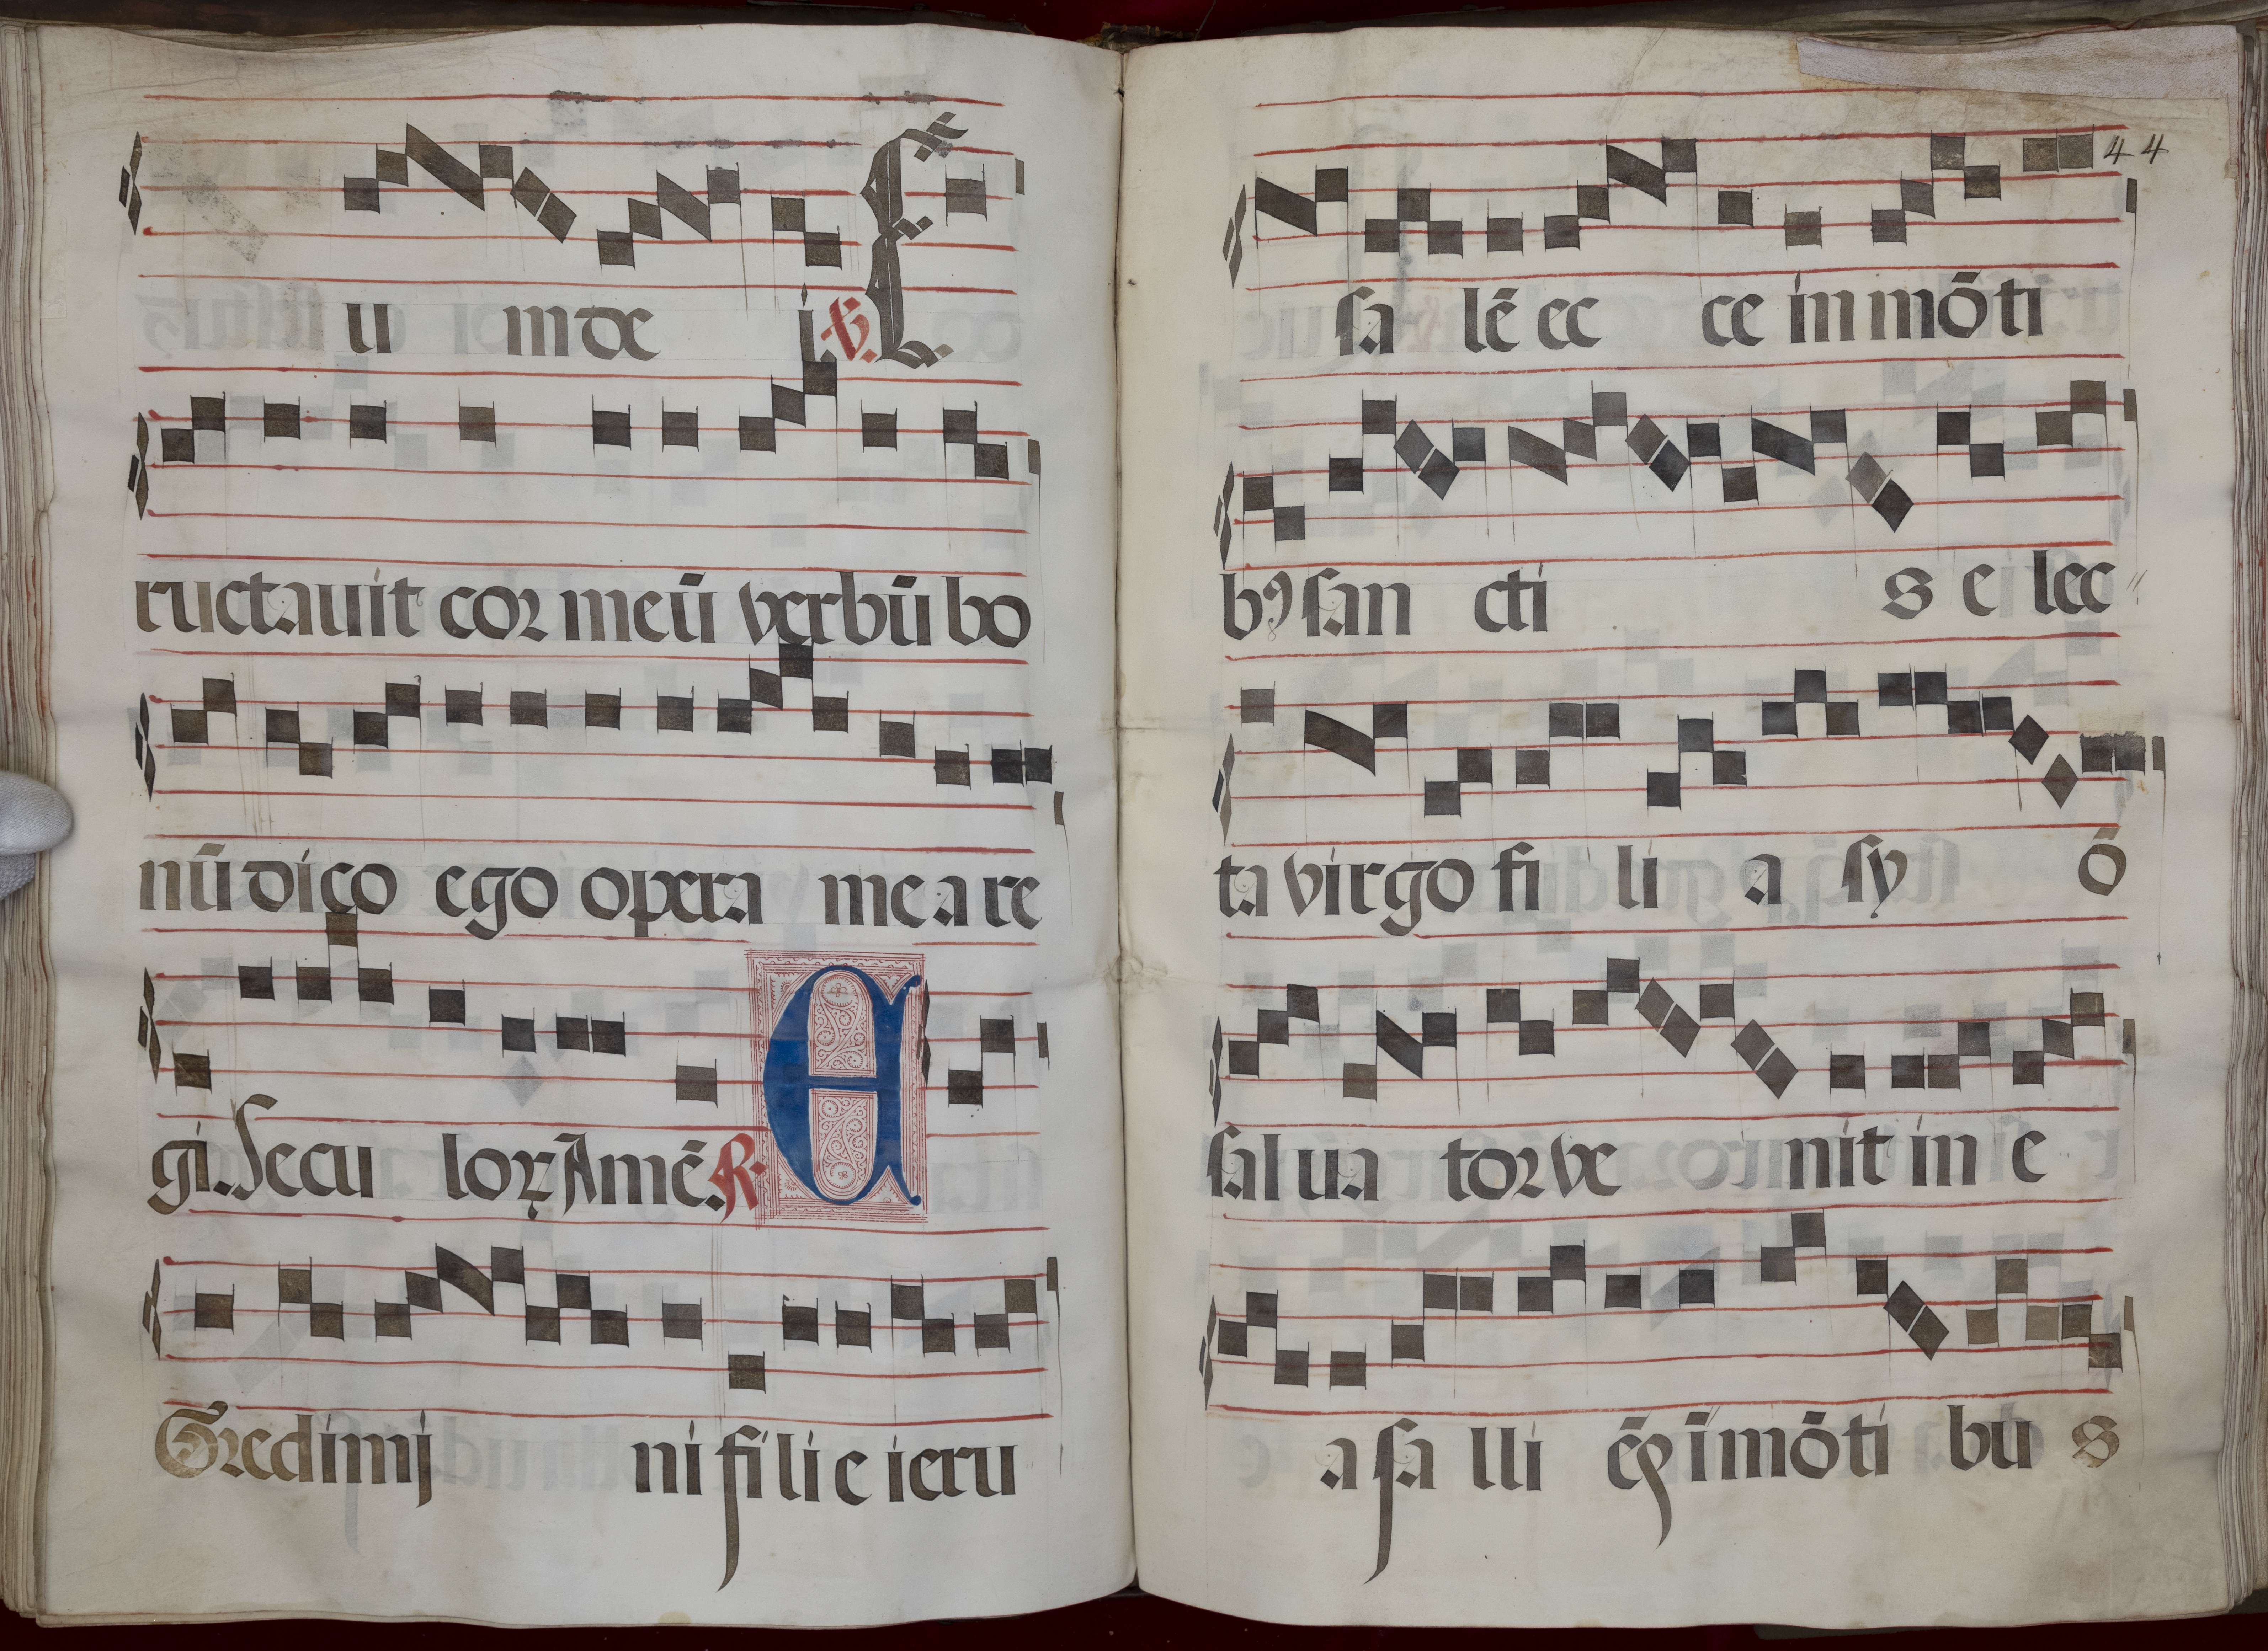 u in de i. ℣. E
ructauit cor meū verbū bo
nū dico ego opera mea re
gi. Secu lorꝝ Amē. ℟. E
Gredimĩ ni filie ieru
44
sa lē ec ce in mōti
bꝰ san cti s e lec
ta virgo fi li a sy ō
sal ua tor ve nit in e
a sa lli ēꝫ ī mōti bu s